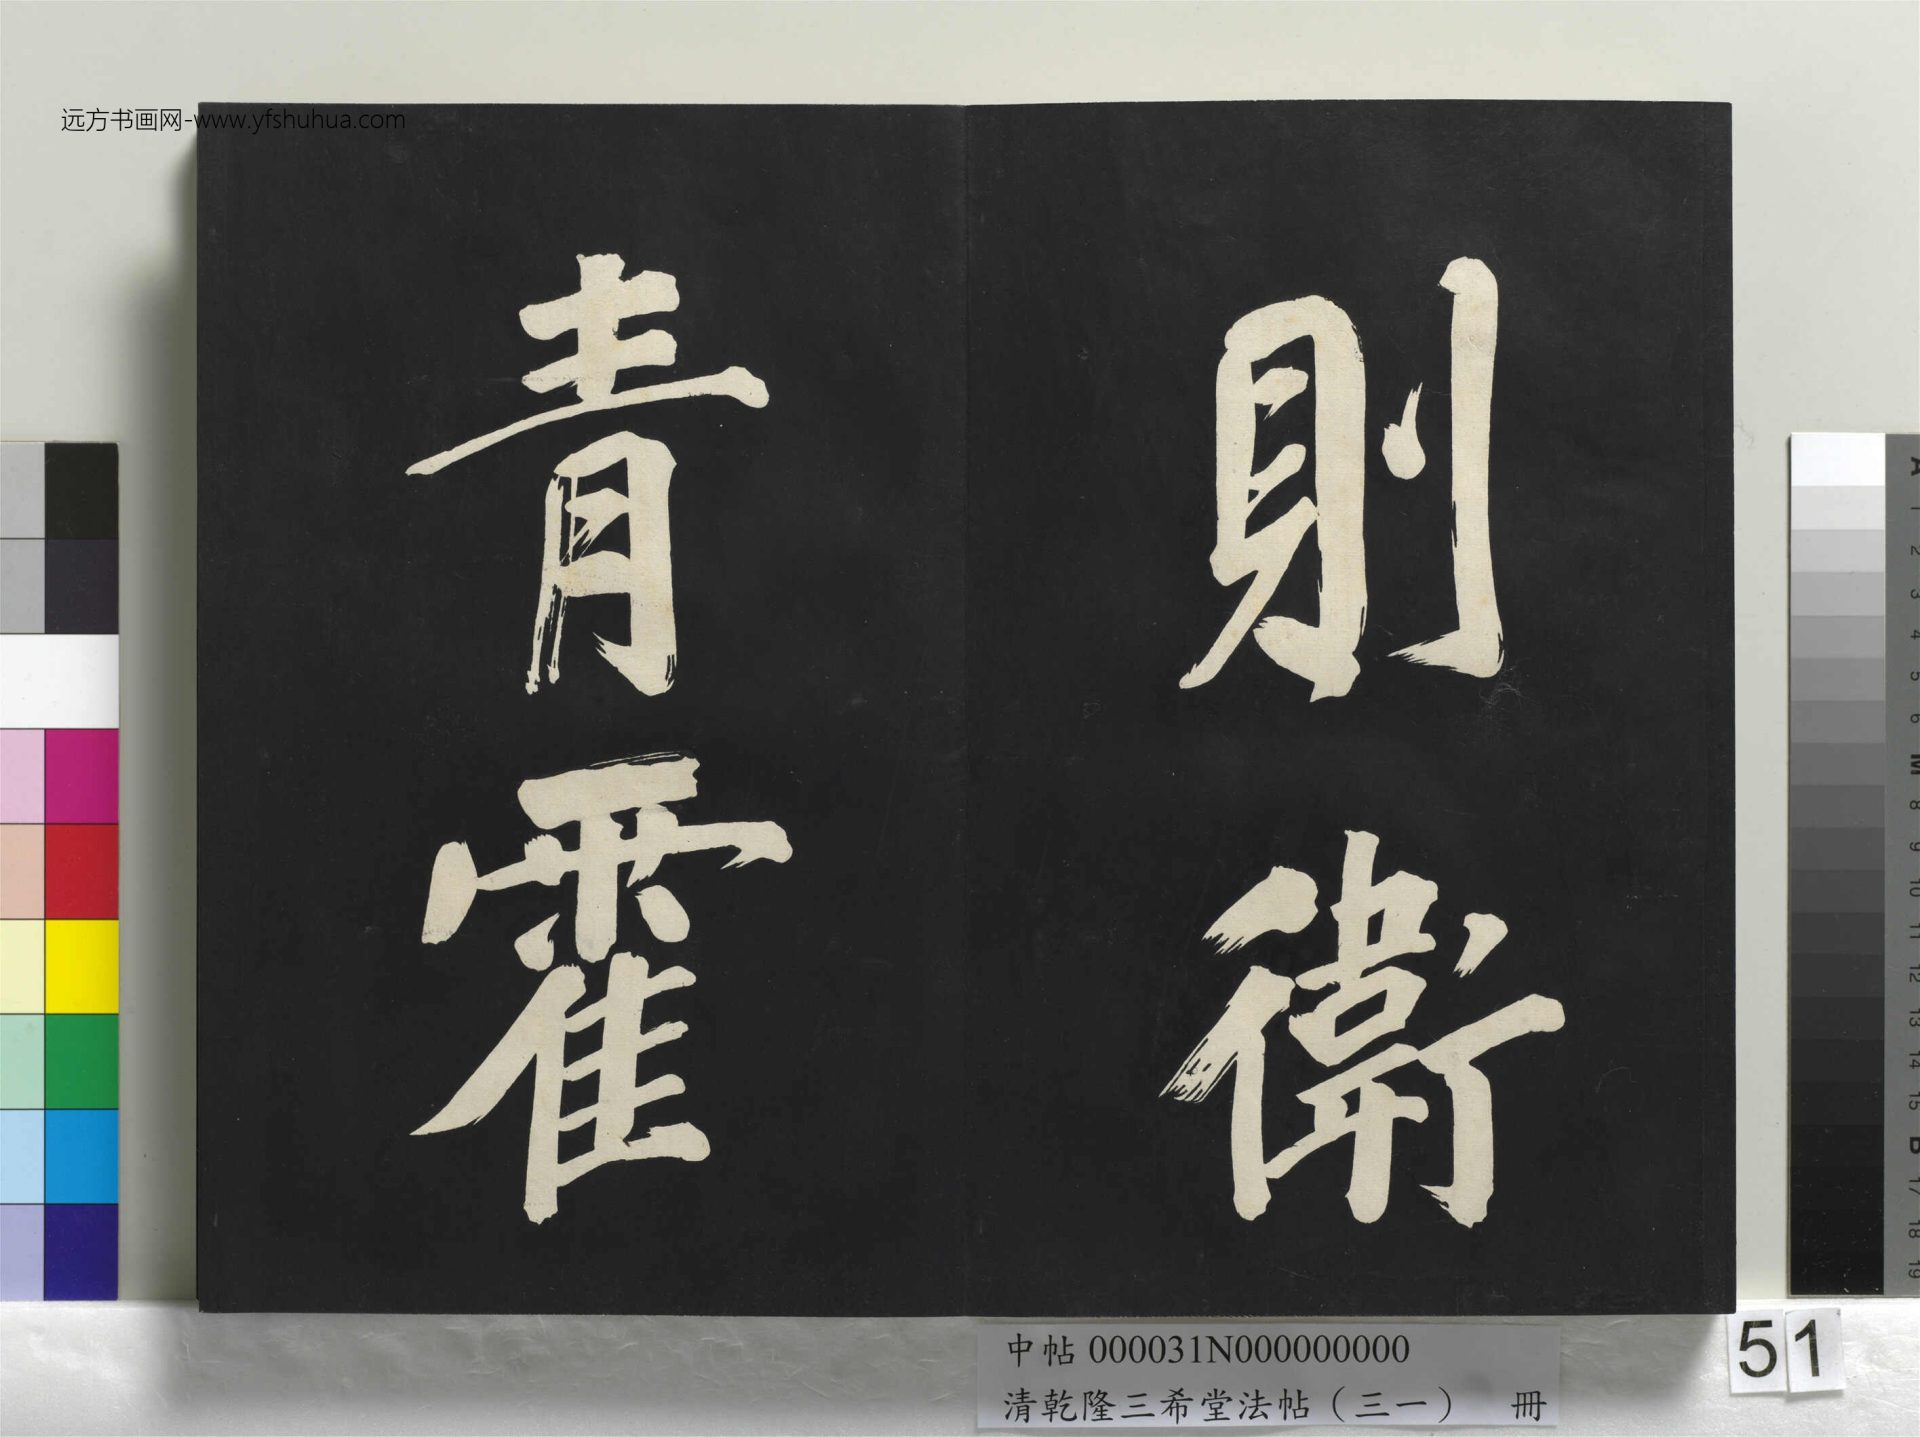 远方书画网-www.yfshuhua.com
則衛
青霍
中帖 000031N000000000
清乾隆三希堂法帖（三一） 冊
51
A
1
2
3
4
5
6
M
8
9
10
11
12
13
14
15
B
17
18
19